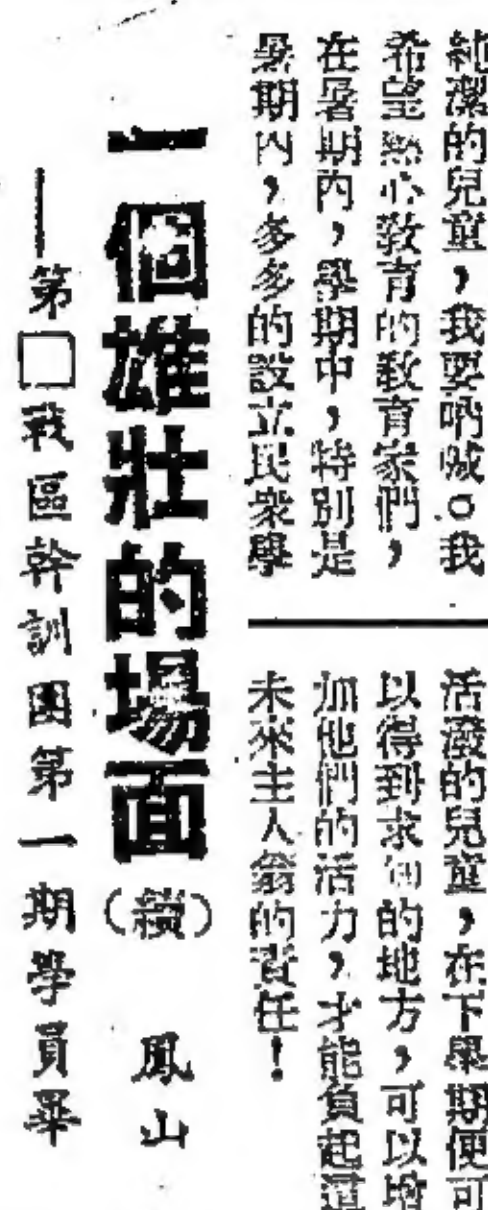 純潔的兒童，我要吶喊。我
希望熱心教育的教育家們，
在暑期內，學期中，特別是
暑期內，多多的設立民衆學
活潑的兒童，在下學期便可
以得到求知的地方，可以增
加他們的活力，才能負起這
未來主人翁的責任！
一個雄壯的場面（續） 鳳山
——第□戰區幹訓團第一期學員畢